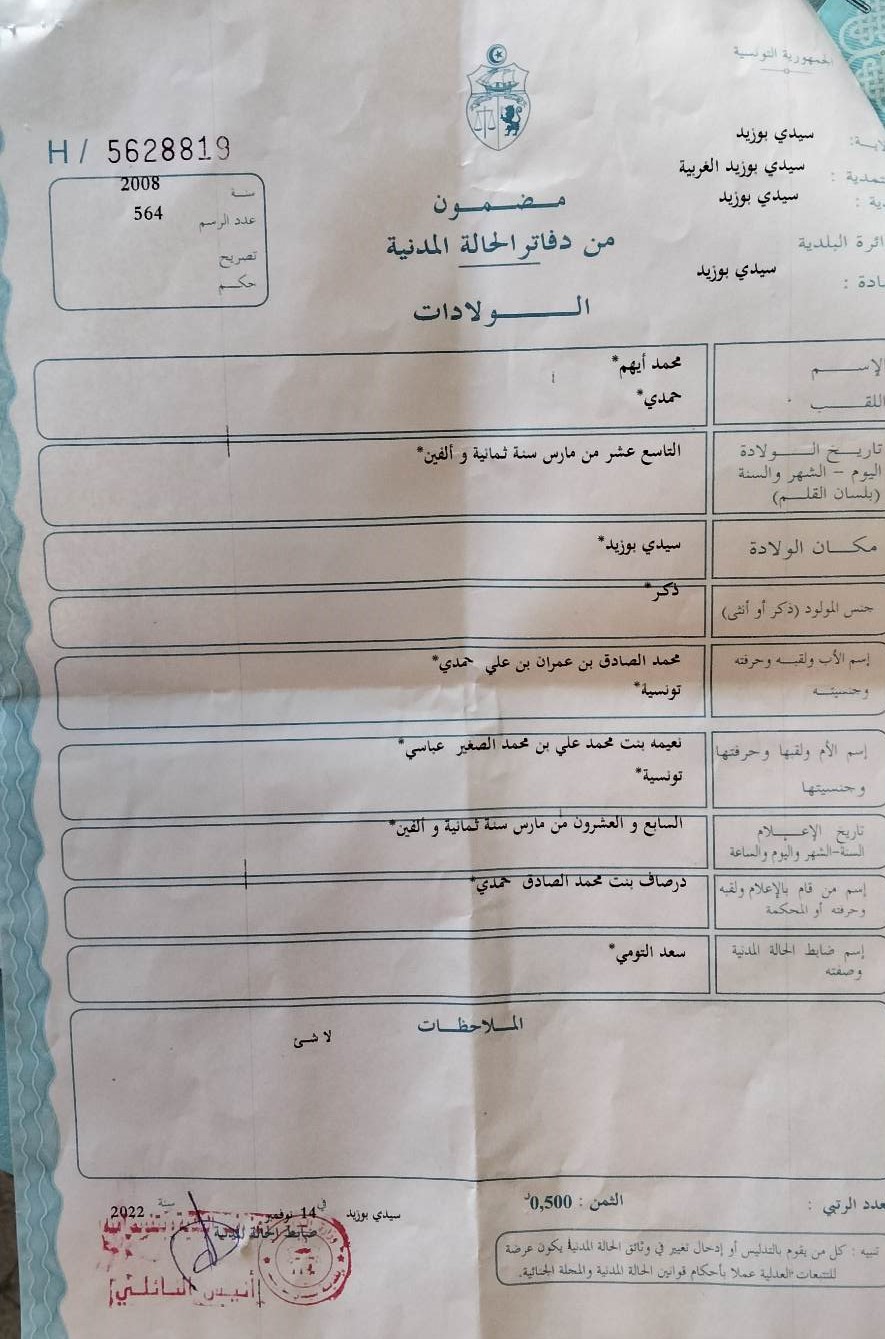 الجمهورية التونسية
H / 5628819
سنة 2008
عدد الرسم 564
تصريح
حكـم
سيدي بوزيد
سيدي بوزيد الغربية
سيدي بوزيد
ائرة البلدية
سيدي بوزيد
مـضـمـون
من دفاتر الحالة المدنية
الـــولادات
الإســـم محمد أيهم*
اللقــب حمدي*
تاريـخ الـــولادة التاسع عشر من مارس سنة ثمانية و ألفين*
اليوم – الشهر والسنة
(بلسان القلـم)
مكـان الولادة سيدي بوزيد*
جنس المولود (ذكر أو أنثى) ذكر*
إسم الأب ولقبـه وحرفته محمد الصادق بن عمران بن علي حمدي*
وجنسيتـه تونسية*
إسم الأم ولقبها وحرفتها نعيمه بنت محمد علي بن محمد الصغير عباسي*
وجنسيتها تونسية*
تاريخ الإعـــلام السابع و العشرون من مارس سنة ثمانية و ألفين*
السنة-الشهر واليوم والساعة
إسم من قام بالإعلام ولقبه درصاف بنت محمد الصادق حمدي*
وحرفته أو المحكمة
إسم ضابط الحالة المدنية سعد التومي*
وصفته
الملاحظـات
لا شئ
الثمن : 0,500د
سيدي بوزيد في 14 نوفمبر سنة 2022
ضابط الحالة المدنية
أنيس النائلي
تنبيه : كل من يقوم بالتدليس أو إدخال تغيير في وثائق الحالة المدنية يكون عرضة
للتتبعات العدلية عملا بأحكام قوانين الحالة المدنية والمجلة الجنائية.